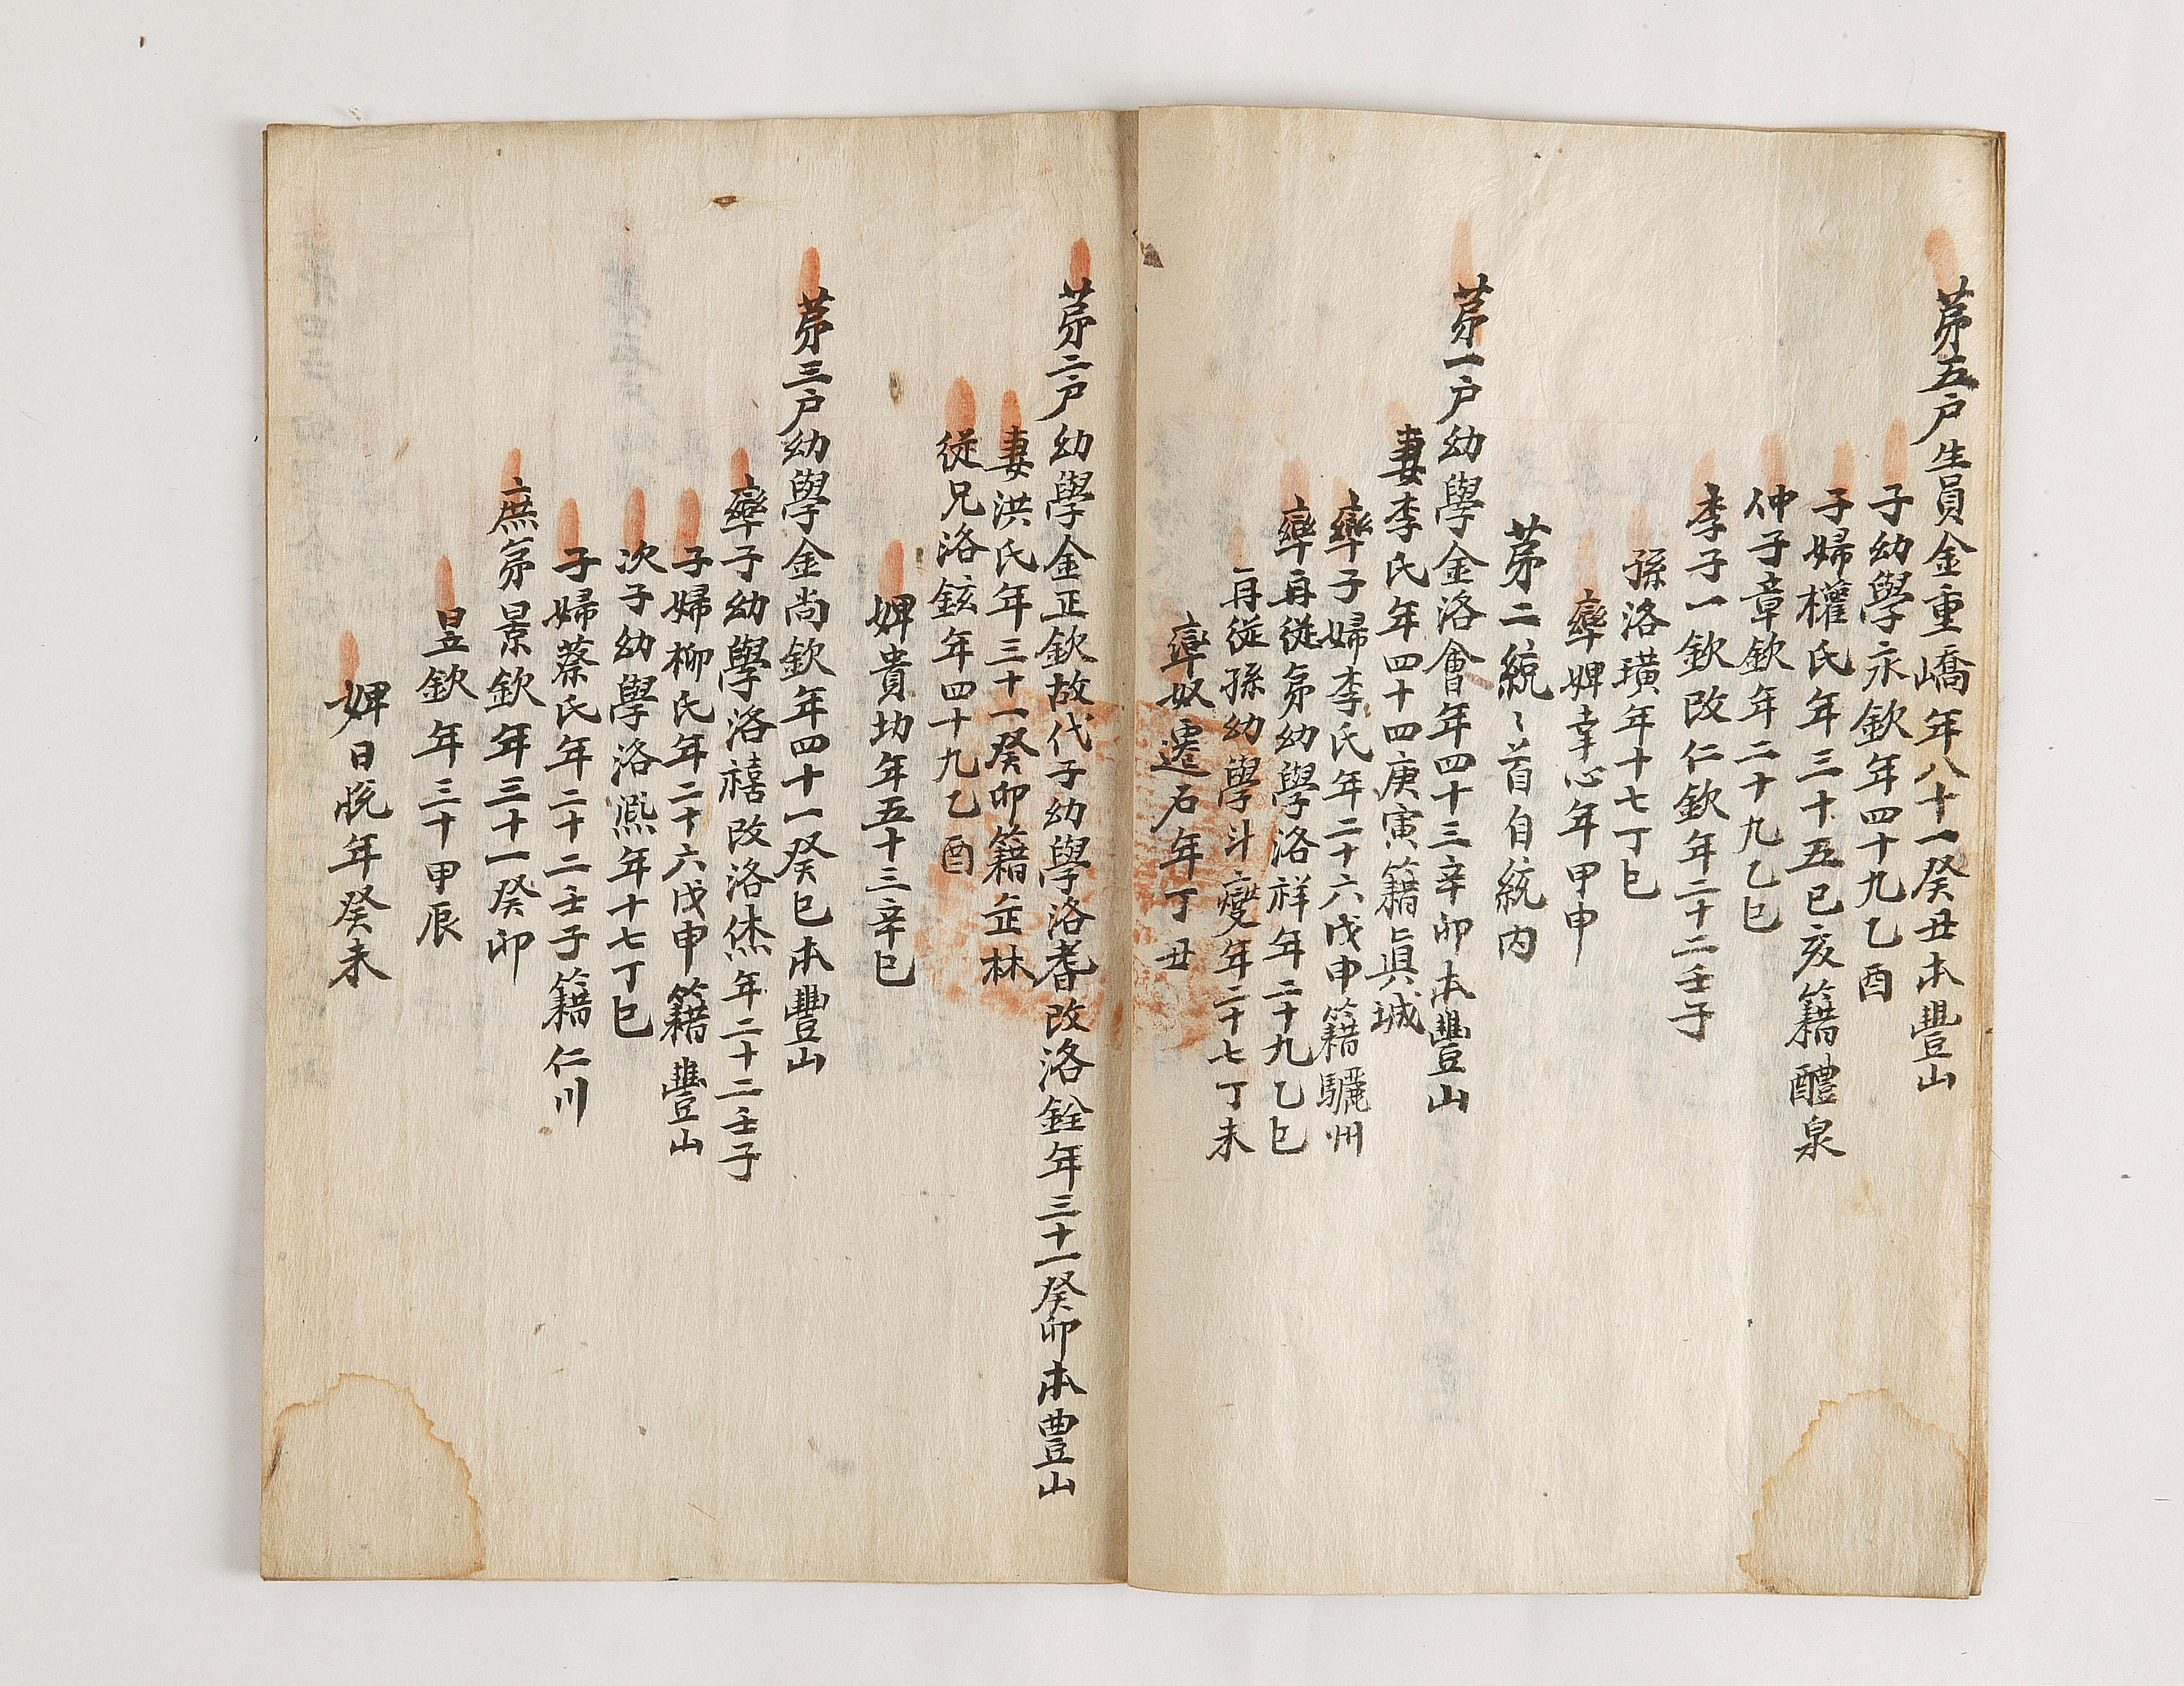 苐五户生員金重嶠年八十一癸丑本豊山
子幼學永欽年四十九乙酉
子婦權氏年三十五己亥籍醴泉
仲子章欽年二十九乙巳
季子一欽改仁欽年二十二壬子
孫洛璜年十七丁巳
率婢幸心年甲申
苐二統〻首自統内
苐一户幼學金洛會年四十三辛卯本豊山
妻李氏年四十四庚寅籍眞城
率子婦李氏年二十六戊申籍驪州
率再從弟幼學洛祥年二十九乙巳
再從孫幼學斗燮年二十七丁未
率奴暹石年丁丑
苐二户幼學金正欽故代子幼學洛耆改洛銓年三十一癸卯本豊山
妻洪氏年三十一癸卯籍缶林
從兄洛鉉年四十九乙酉
婢貴㘦年五十三辛巳
苐三户幼學金尚欽年四十一癸巳本豊山
率子幼學洛禧改洛烋年二十二壬子
子婦柳氏年二十六戊申籍豊山
次子幼學洛熈年十七丁巳
子婦蔡氏年二十二壬子籍仁川
庶弟景欽年三十一癸卯
昱欽年三十甲辰
婢日悅年癸未